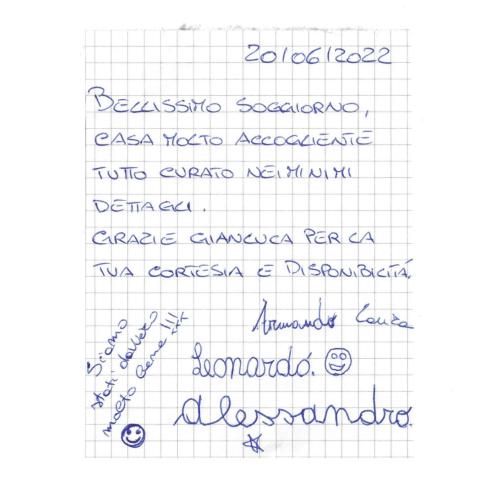 20/06/2022
BELLISSIMO SOGGIORNO,
CASA MOLTO ACCOGLIENTE
TUTTO CURATO NEI MINIMI
DETTAGLI.
GRAZIE GIANLUCA PER LA
TUA CORTESIA E DISPONIBILITÁ.
Armando Laura
Leonardo.
Alessandro.
Siamo
stati davvero
molto bene!!!